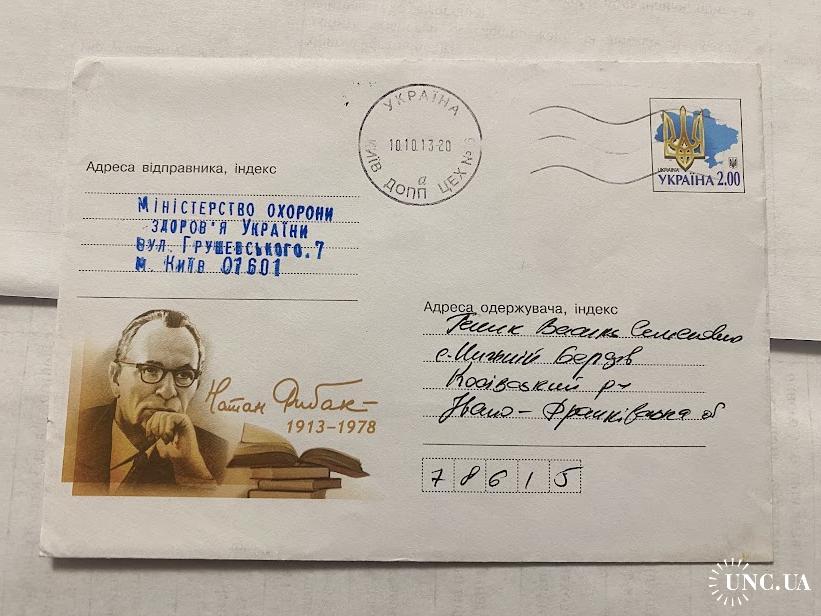 УКРАЇНА
10.10.13-20
а
КИЇВ ДОПП ЦЕХ №
УКРАЇНА 2.00
Адреса відправника, індекс
МІНІСТЕРСТВО ОХОРОНИ
ЗДОРОВ'Я УКРАЇНИ
ВУЛ. ГРУШЕВСЬКОГО.7
М. КИЇВ 01601
Адреса одержувача, індекс
Василь Семенович
с. Нижній Березів
Косівський р-н
Івано-Франківська об
78615
Натан Рибак
1913–1978
UNC.UA